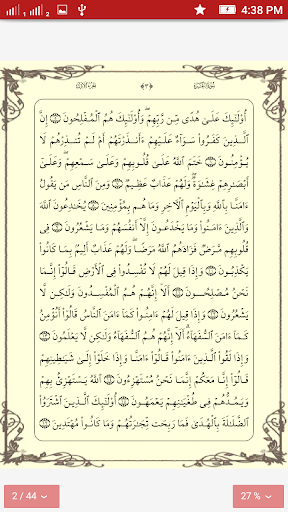 1 2 4:38 PM
سُورَةُ البَقَرَة ﴿٣﴾ الجُزءُ الأوّل
أُوْلَٰٓئِكَ عَلَىٰ هُدًى مِّن رَّبِّهِمْ ۖ وَأُوْلَٰٓئِكَ هُمُ ٱلْمُفْلِحُونَ ۝ إِنَّ
ٱلَّذِينَ كَفَرُواْ سَوَآءٌ عَلَيْهِمْ ءَأَنذَرْتَهُمْ أَمْ لَمْ تُنذِرْهُمْ لَا
يُؤْمِنُونَ ۝ خَتَمَ ٱللَّهُ عَلَىٰ قُلُوبِهِمْ وَعَلَىٰ سَمْعِهِمْ ۖ وَعَلَىٰٓ
أَبْصَٰرِهِمْ غِشَٰوَةٌ ۖ وَلَهُمْ عَذَابٌ عَظِيمٌ ۝ وَمِنَ ٱلنَّاسِ مَن يَقُولُ
ءَامَنَّا بِٱللَّهِ وَبِٱلْيَوْمِ ٱلْءَاخِرِ وَمَا هُم بِمُؤْمِنِينَ ۝ يُخَٰدِعُونَ ٱللَّهَ
وَٱلَّذِينَ ءَامَنُواْ وَمَا يَخْدَعُونَ إِلَّآ أَنفُسَهُمْ وَمَا يَشْعُرُونَ ۝ فِي
قُلُوبِهِم مَّرَضٌ فَزَادَهُمُ ٱللَّهُ مَرَضًا ۖ وَلَهُمْ عَذَابٌ أَلِيمٌۢ بِمَا كَانُواْ
يَكْذِبُونَ ۝ وَإِذَا قِيلَ لَهُمْ لَا تُفْسِدُواْ فِي ٱلْأَرْضِ قَالُوٓاْ إِنَّمَا
نَحْنُ مُصْلِحُونَ ۝ أَلَآ إِنَّهُمْ هُمُ ٱلْمُفْسِدُونَ وَلَٰكِن لَّا
يَشْعُرُونَ ۝ وَإِذَا قِيلَ لَهُمْ ءَامِنُواْ كَمَآ ءَامَنَ ٱلنَّاسُ قَالُوٓاْ أَنُؤْمِنُ
كَمَآ ءَامَنَ ٱلسُّفَهَآءُ ۗ أَلَآ إِنَّهُمْ هُمُ ٱلسُّفَهَآءُ وَلَٰكِن لَّا يَعْلَمُونَ ۝
وَإِذَا لَقُواْ ٱلَّذِينَ ءَامَنُواْ قَالُوٓاْ ءَامَنَّا وَإِذَا خَلَوْاْ إِلَىٰ شَيَٰطِينِهِمْ
قَالُوٓاْ إِنَّا مَعَكُمْ إِنَّمَا نَحْنُ مُسْتَهْزِءُونَ ۝ ٱللَّهُ يَسْتَهْزِئُ بِهِمْ
وَيَمُدُّهُمْ فِي طُغْيَٰنِهِمْ يَعْمَهُونَ ۝ أُوْلَٰٓئِكَ ٱلَّذِينَ ٱشْتَرَوُاْ
ٱلضَّلَٰلَةَ بِٱلْهُدَىٰ فَمَا رَبِحَت تِّجَٰرَتُهُمْ وَمَا كَانُواْ مُهْتَدِينَ ۝
2 / 44 27 %